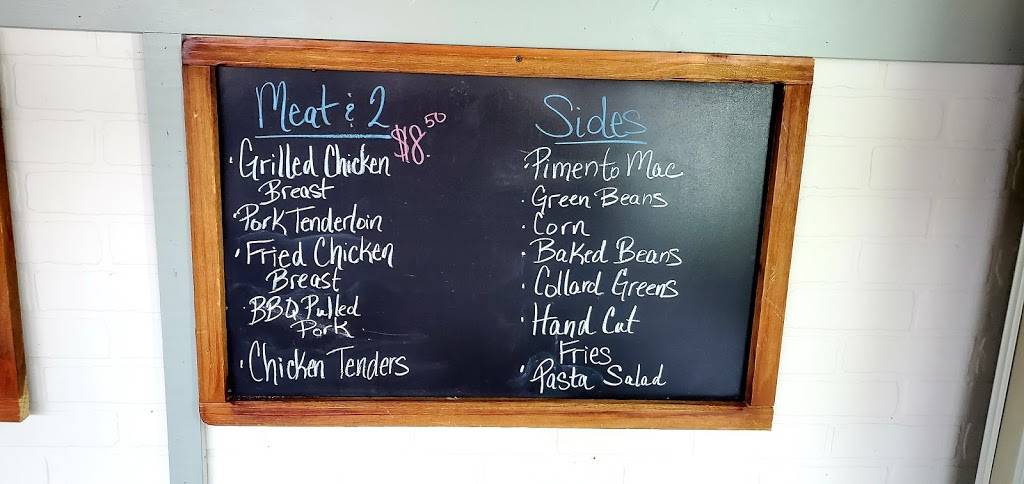 Meat & 2
$18.50
Grilled Chicken
Breast
Pork Tenderloin
Fried Chicken
Breast
BBQ Pulled
Pork
Chicken Tenders
Sides
Pimento Mac
Green Beans
Corn
Baked Beans
Collard Greens
Hand Cut
Fries
Pasta Salad